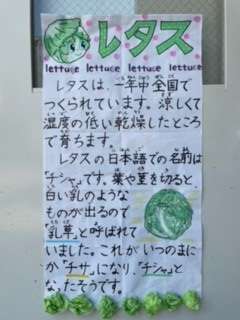 レタス
lettuce lettuce lettuce lettuce
レタスは、一年中全国で
つくられています。涼しくて
湿度の低い乾燥したところ
で育ちます。
レタスの日本語での名前は
「チシャ」です。葉や茎を切ると、
白い乳のような
ものが出るので
「乳草」と呼ばれて
いました。これがいつのまに
か「チサ」になり、「チシャ」と
なったそうです。